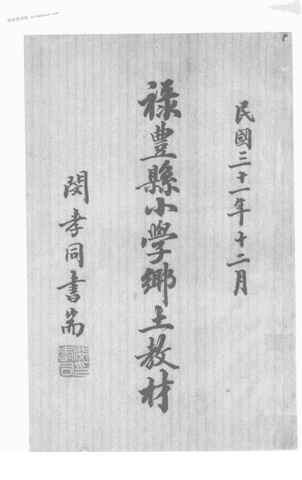 民國三十一年十二月
祿豊縣小學鄉土教材
閔孝同書耑